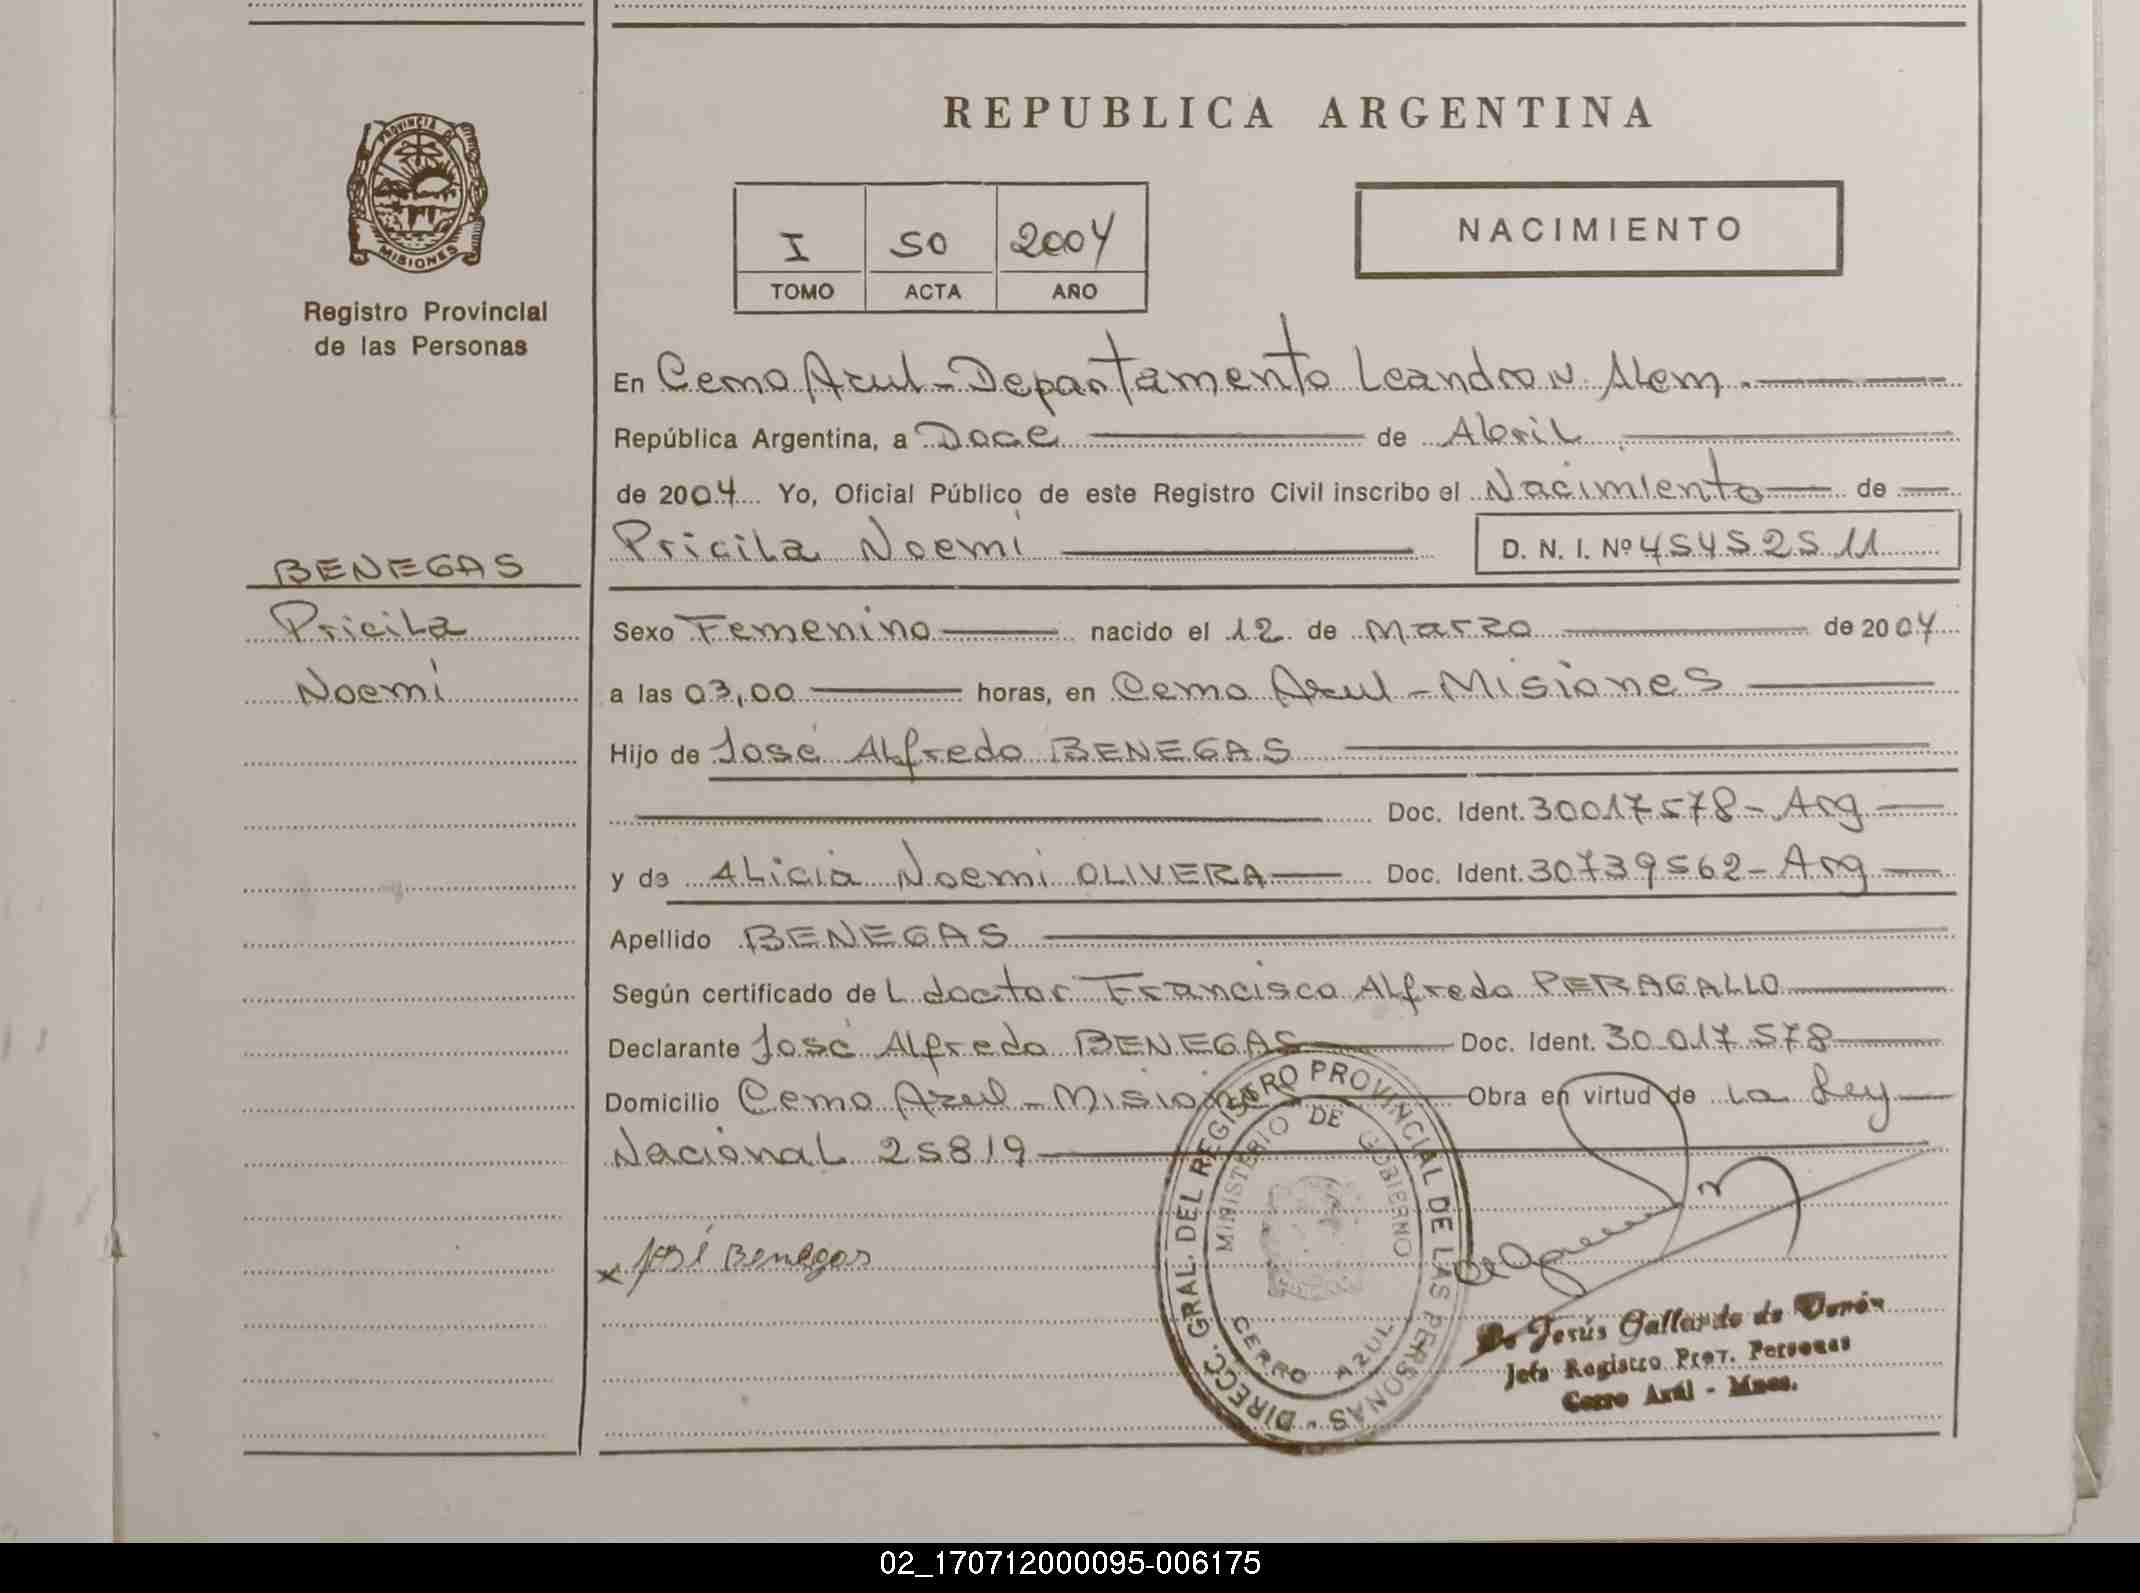 REPUBLICA ARGENTINA
PROVINCIA DE MISIONES
Registro Provincial
de las Personas
I 50 2004
TOMO ACTA AÑO
NACIMIENTO
En Cerro Azul - Departamento Leandro N. Alem.
República Argentina, a Doce de Abril
de 2004 Yo, Oficial Público de este Registro Civil inscribo el Nacimiento de
Pricila Noemi D. N. I. Nº 45452511
BENEGAS
Pricila
Noemi
Sexo Femenino nacido el 12 de Marzo de 2004
a las 03,00 horas, en Cerro Azul - Misiones
Hijo de José Alfredo BENEGAS
Doc. Ident. 30017578 - Arg
y de Alicia Noemi OLIVERA Doc. Ident. 30739562 - Arg
Apellido BENEGAS
Según certificado de L doctor Francisco Alfredo PERAGALLO
Declarante José Alfredo BENEGAS Doc. Ident. 30.017.578
Domicilio Cerro Azul - Misiones Obra en virtud de La Ley
Nacional 25819
x José Benegas
DIRECC. GRAL. DEL REGISTRO PROVINCIAL DE LAS PERSONAS -
MINISTERIO DE GOBIERNO
CERRO AZUL
De Jesús Gallardo de
Jefa Registro Prov. Personas
Cerro Azul - Mnes.
02_170712000095-006175